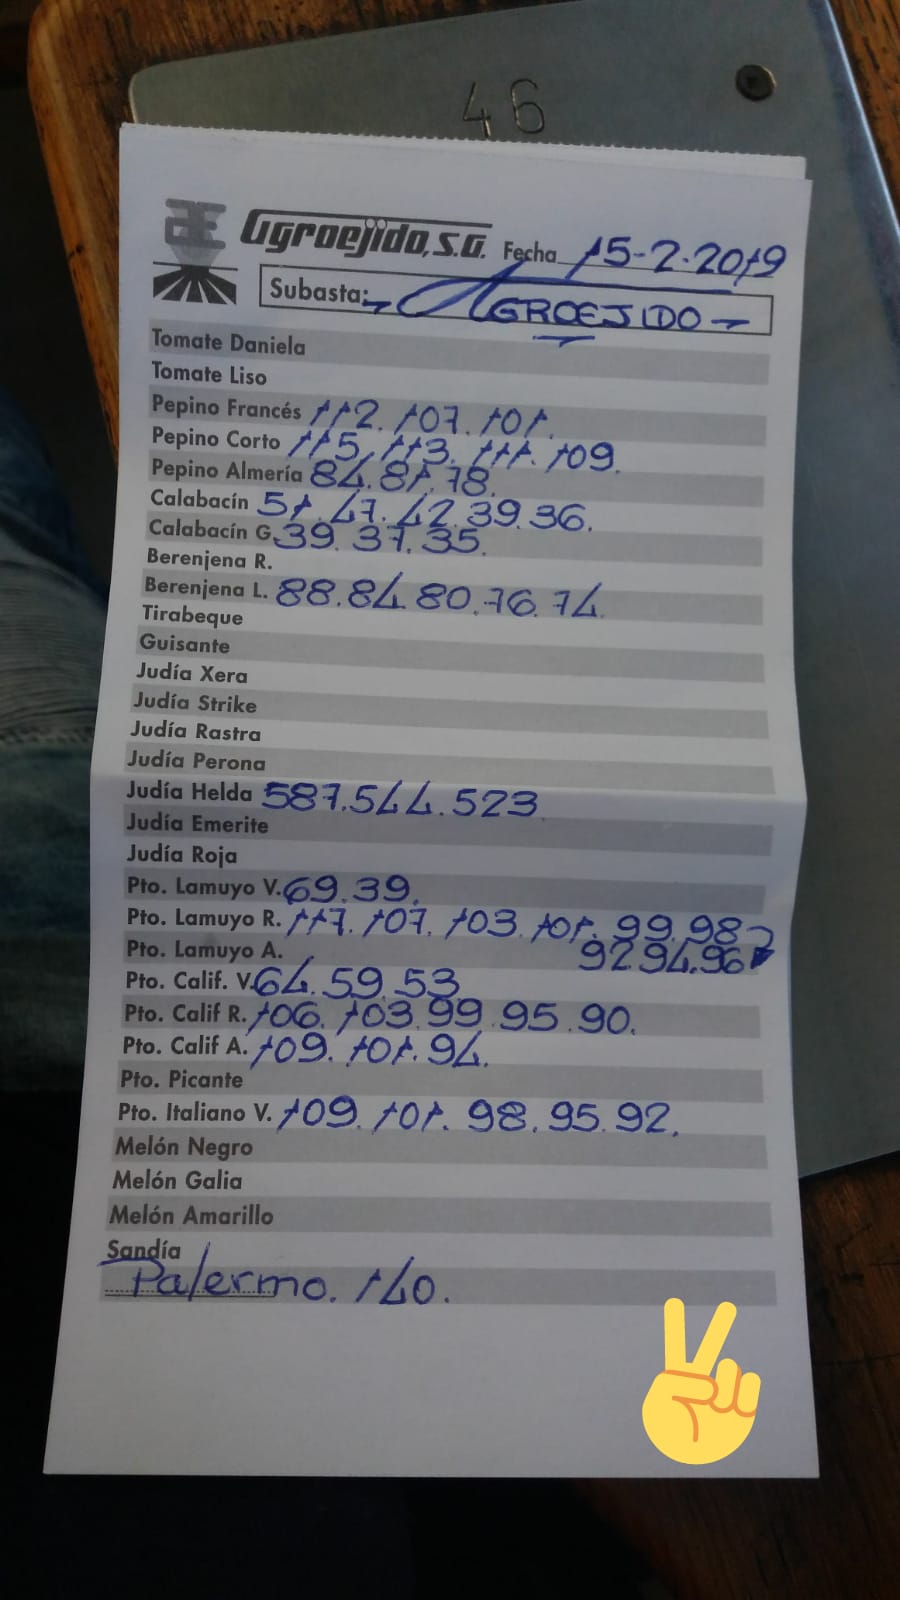 46
Agroejido, S.A. Fecha 15-2-2019
Subasta: AGROEJIDO
Tomate Daniela
Tomate Liso
Pepino Francés 112. 107. 101.
Pepino Corto 115. 113. 111. 109.
Pepino Almería 84. 81. 78.
Calabacín 51. 47. 42. 39. 36.
Calabacín G. 39. 37. 35.
Berenjena R.
Berenjena L. 88. 84. 80. 76. 74.
Tirabeque
Guisante
Judía Xera
Judía Strike
Judía Rastra
Judía Perona
Judía Helda 587. 544. 523
Judía Emerite
Judía Roja
Pto. Lamuyo V. 69. 39.
Pto. Lamuyo R. 117. 107. 103. 101. 99. 98
Pto. Lamuyo A. 92 94. 96
Pto. Calif. V. 64. 59. 53
Pto. Calif R. 106. 103. 99. 95. 90.
Pto. Calif A. 109. 101. 94.
Pto. Picante
Pto. Italiano V. 109. 101. 98. 95. 92.
Melón Negro
Melón Galia
Melón Amarillo
Sandía
Palermo. 140.